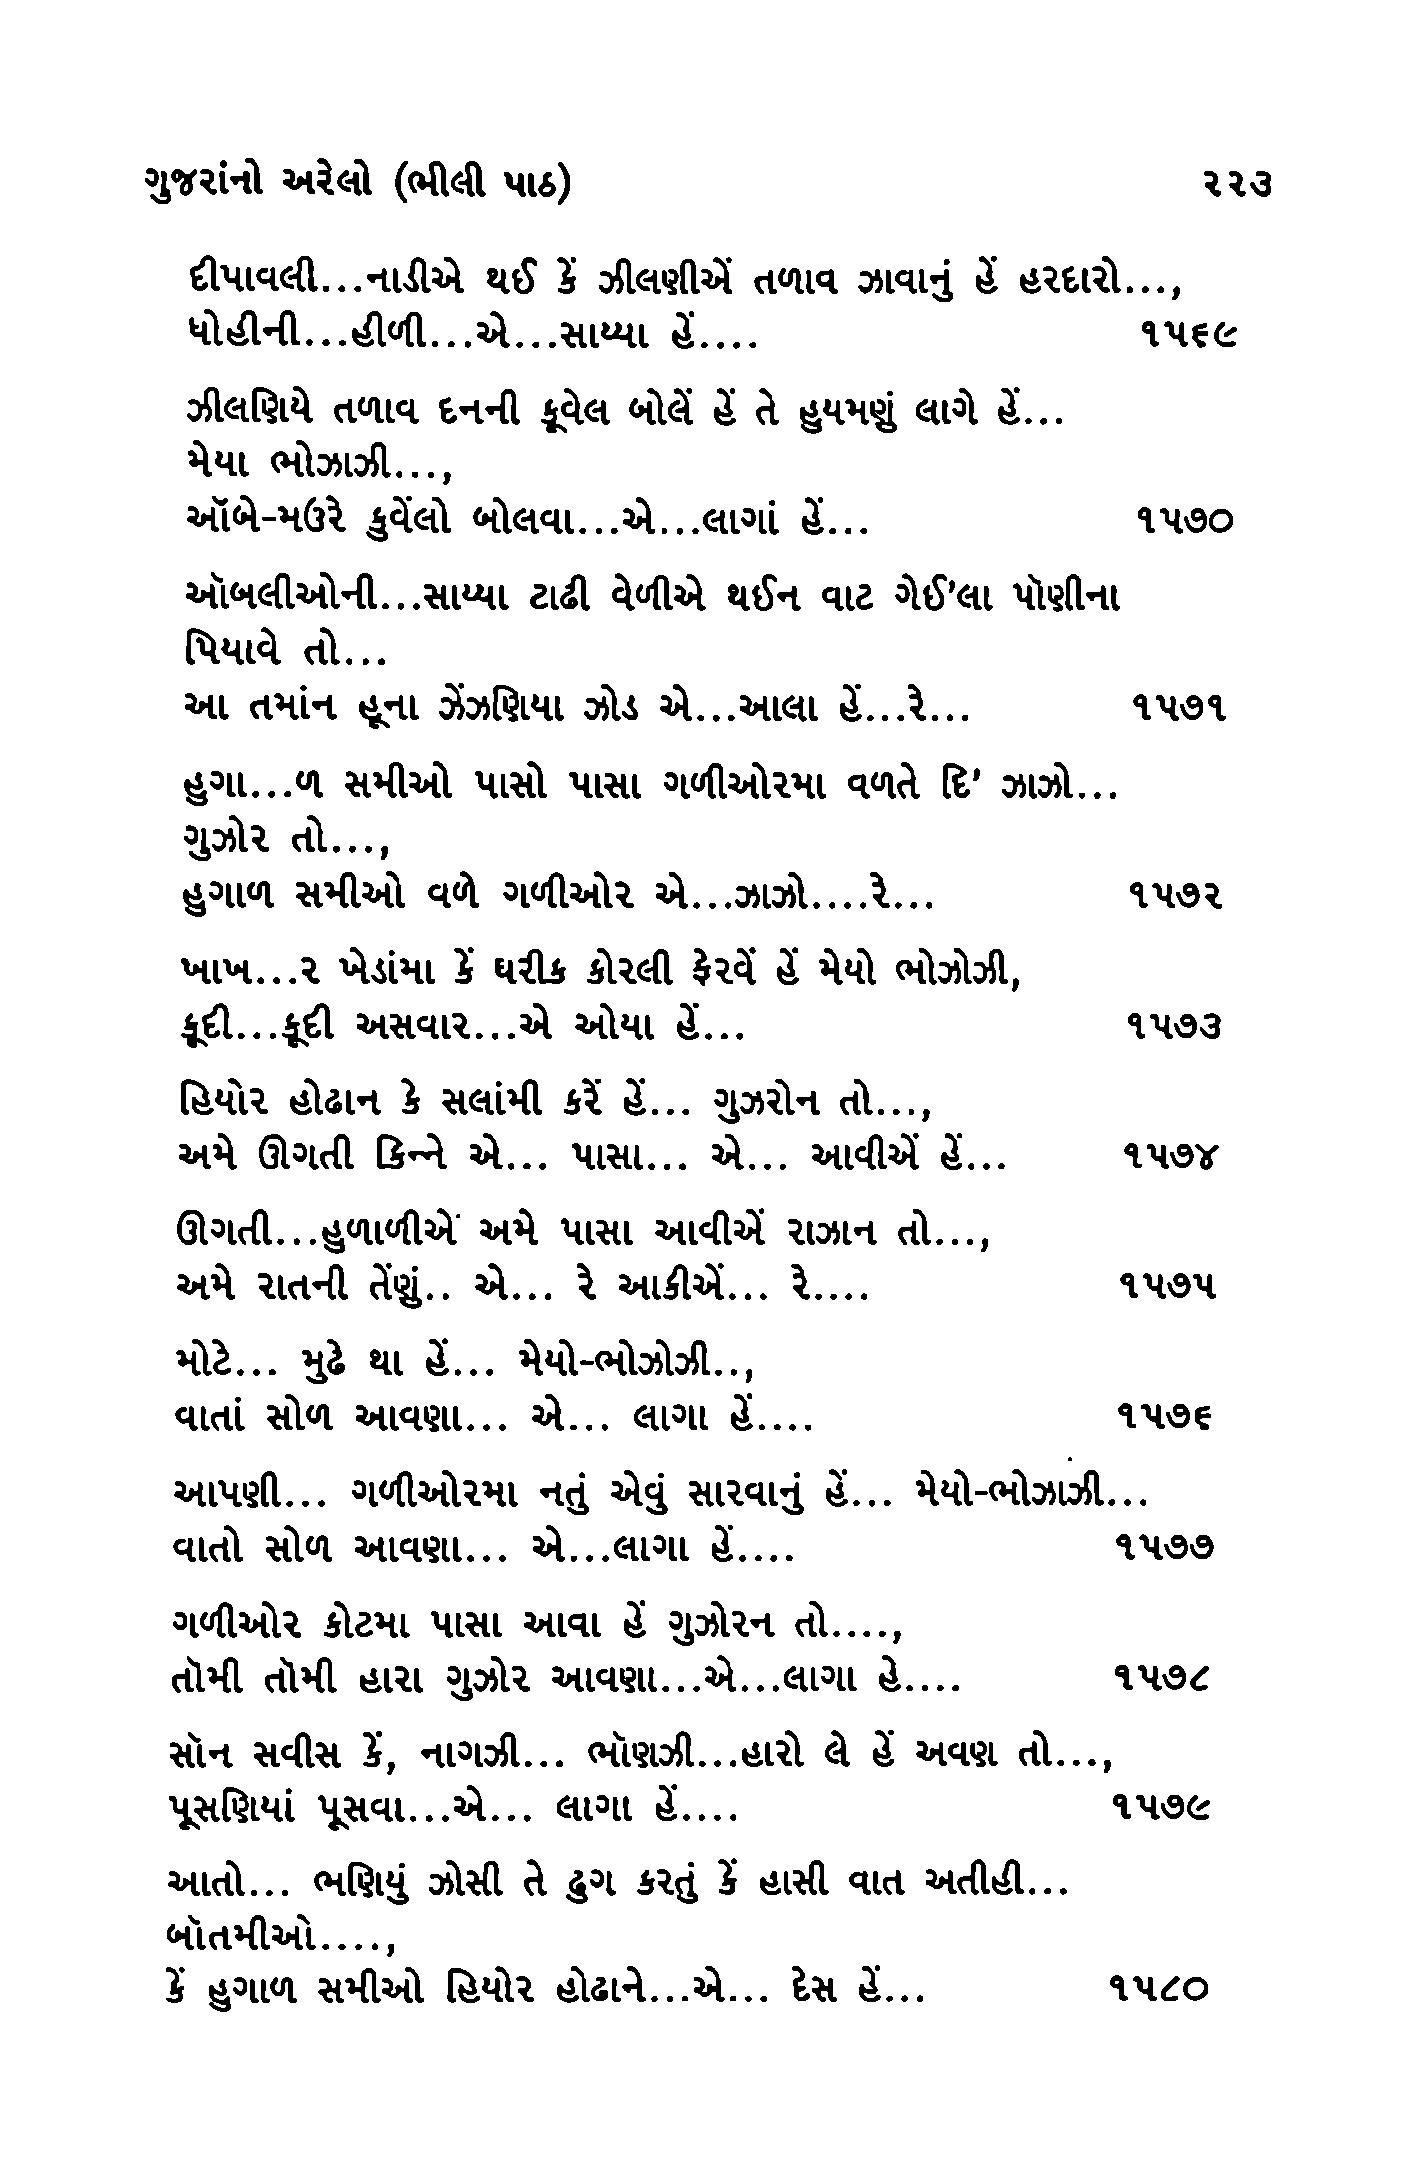 ગુજરાંનો અરેલો (ભીલી પાઠ) ૨૨૩
દીપાવલી...નાડીએ થઈ કેં ઝીલણીએં તળાવ ઝાવાનું હેં હરદારો...,
ધોહીની...હીળી...એ...સાય્યા હેં.... ૧૫૬૯
ઝીલણિયે તળાવ દનની કૂવેલ બોલેં હેં તે હુયમણું લાગે હેં...
મેયા ભોઝાઝી...,
ઑબે-મઉરે કુવેંલો બોલવા...એ...લાગાં હેં... ૧૫૭૦
ઑબલીઓની...સાય્યા ટાઢી વેળીએ થઈન વાટ ગેઈ'લા પૉણીના
પિયાવે તો...
આ તમાંન હૂના ઝેંઝણિયા ઝોડ એ...આલા હેં...રે... ૧૫૭૧
હુગા...ળ સમીઓ પાસો પાસા ગળીઓરમા વળતે દિ' ઝાઝો...
ગુઝોર તો...,
હુગાળ સમીઓ વળે ગળીઓર એ...ઝાઝો....રે... ૧૫૭૨
ખાખ...ર ખેડાંમા કેં ઘરીક કોરલી ફેરવેં હેં મેયો ભોઝોઝી,
કૂદી...કૂદી અસવાર...એ ઓયા હેં... ૧૫૭૩
હિયોર હોઢાન કે સલાંમી કરેં હેં... ગુઝરોન તો...,
અમે ઊગતી કિન્ને એ... પાસા... એ... આવીએં હેં... ૧૫૭૪
ઊગતી...હુળાળીએં અમે પાસા આવીએં રાઝાન તો...,
અમે રાતની તેંણું.. એ... રે આકીએં... રે.... ૧૫૭૫
મોટે... મુઢે થા હેં... મેયો-ભોઝોઝી..,
વાતાં સોળ આવણા... એ... લાગા હેં.... ૧૫૭૬
આપણી... ગળીઓરમા નતું એવું સારવાનું હેં... મેયો-ભોઝાઝી...
વાતો સોળ આવણા... એ...લાગા હેં.... ૧૫૭૭
ગળીઓર કોટમા પાસા આવા હેં ગુઝોરન તો....,
તૉમી તૉમી હારા ગુઝોર આવણા...એ...લાગા હે.... ૧૫૭૮
સૉન સવીસ કેં, નાગઝી... ભૉણઝી...હારો લે હેં અવણ તો...,
પૂસણિયાં પૂસવા...એ... લાગા હેં.... ૧૫૭૯
આતો... ભણિયું ઝોસી તે ઢુગ કરતું કેં હાસી વાત અતીહી...
બૉતમીઓ....,
કેં હુગાળ સમીઓ હિયોર હોઢાને...એ... દેસ હેં... ૧૫૮૦